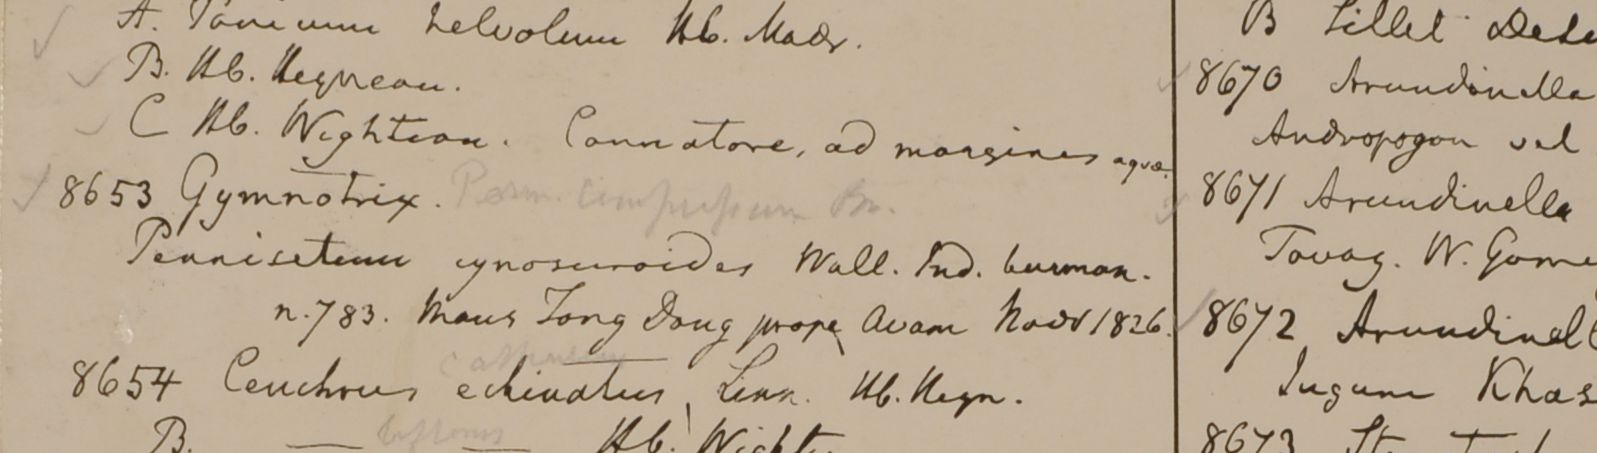 A. Panicum helvolum Hb. Madr.
B. Hb. Heyneau.
C Hb. Wightean. Connatore, ad margines aquæ.
8653 Gymnotrix. Penn. compressum Br.
Pennisetum cynosuroides Wall. Ind. burman.
n. 783. Mons Tong Dong prope Avam Novr 1826.
8654 Cenchrus echinatus Linn. Hb. Heyn.
B. — biflorus — Hb. Wight
B Sillet
8670 Arundinella
Andropogon vel
8671 Arundinella
Tavag. W. Gome
8672 Arundinell
Jugum Khas
8673